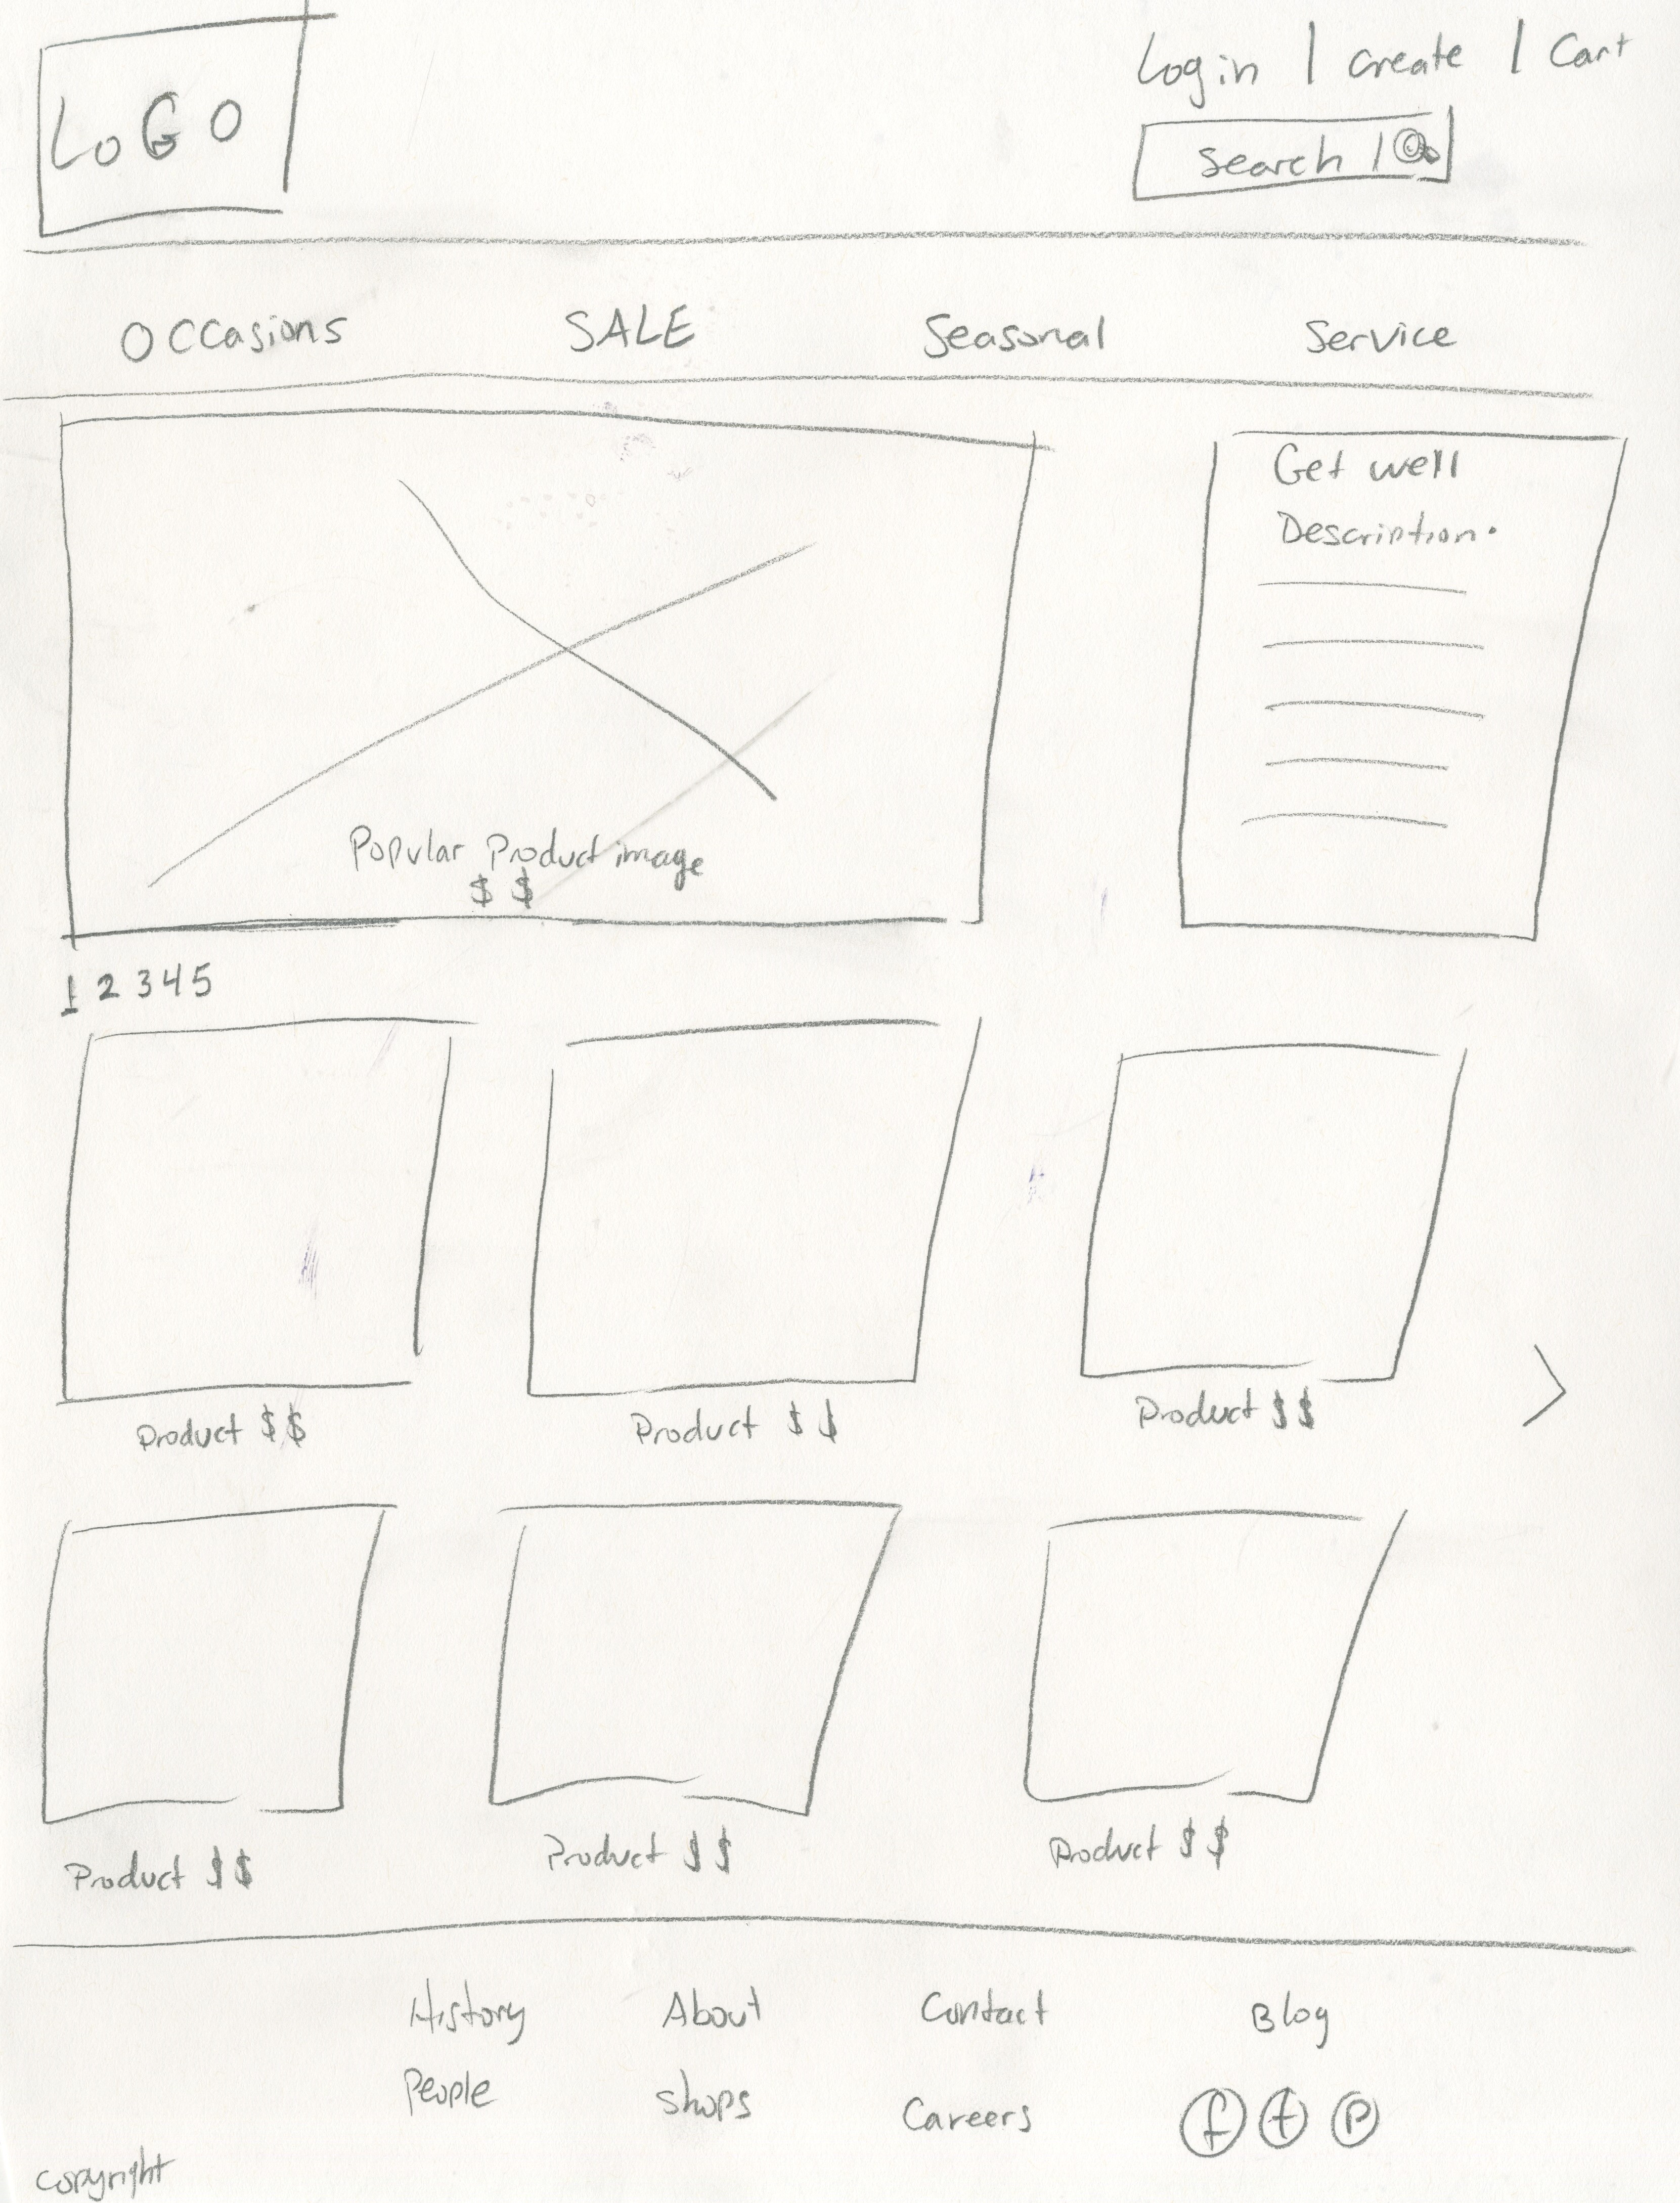 LOGO
Login | Create | Cart
Search |
Occasions SALE Seasonal Service
Get well
Description.
Popular Product image
$ $
1 2 3 4 5
Product $$
Product $$
Product $$
Product $$
Product $$
Product $$
History About Contact Blog
People Shops Careers f t P
copyright